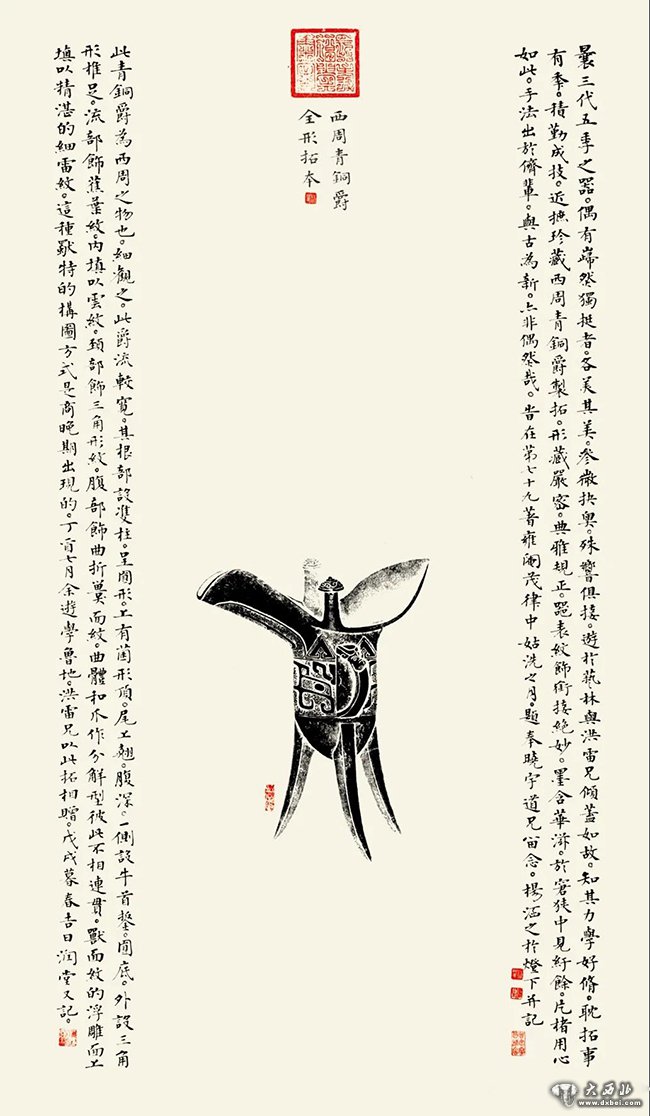 曩三代五季之器。偶有巋然獨挺者。各美其美。參微抉奧。殊響俱接。遊於藝林與洪雷兄傾蓋如故。知其力學好脩。耽拓事
有季。積勤成技。近撫珍藏西周青銅爵製拓。形藏嚴密。典雅規正。器表紋飾銜接絕妙。墨含華滋。於窘狹中見紆餘。片楮用心
如此。手法出於儕輩。與古為新。亦非偶然哉。旹在第七十九蓍雍閹茂律中姑洗之月。題奉曉宇道兄留念。楊洒之於燈下并記
西周青銅爵
全形拓本
此青銅爵為西周之物也。細觀之。此爵流較寬。其根部設雙柱。呈圓形。上有菌形頂。尾上翹。腹深。一側設牛首鋬。圓底。外設三角
形椎足。流部飾蕉葉紋。內填以雲紋。頸部飾三角形紋。腹部飾曲折獸面紋。曲體和爪作分解型彼此不相連貫。獸面紋的浮雕面上
填以精湛的細雷紋。這種獸特的構圖方式是商晚期出現的。丁酉七月余遊學魯地。洪雷兄以此拓相贈。戊戌暮春吉日潤堂又記。
大西北
www.dxbei.com